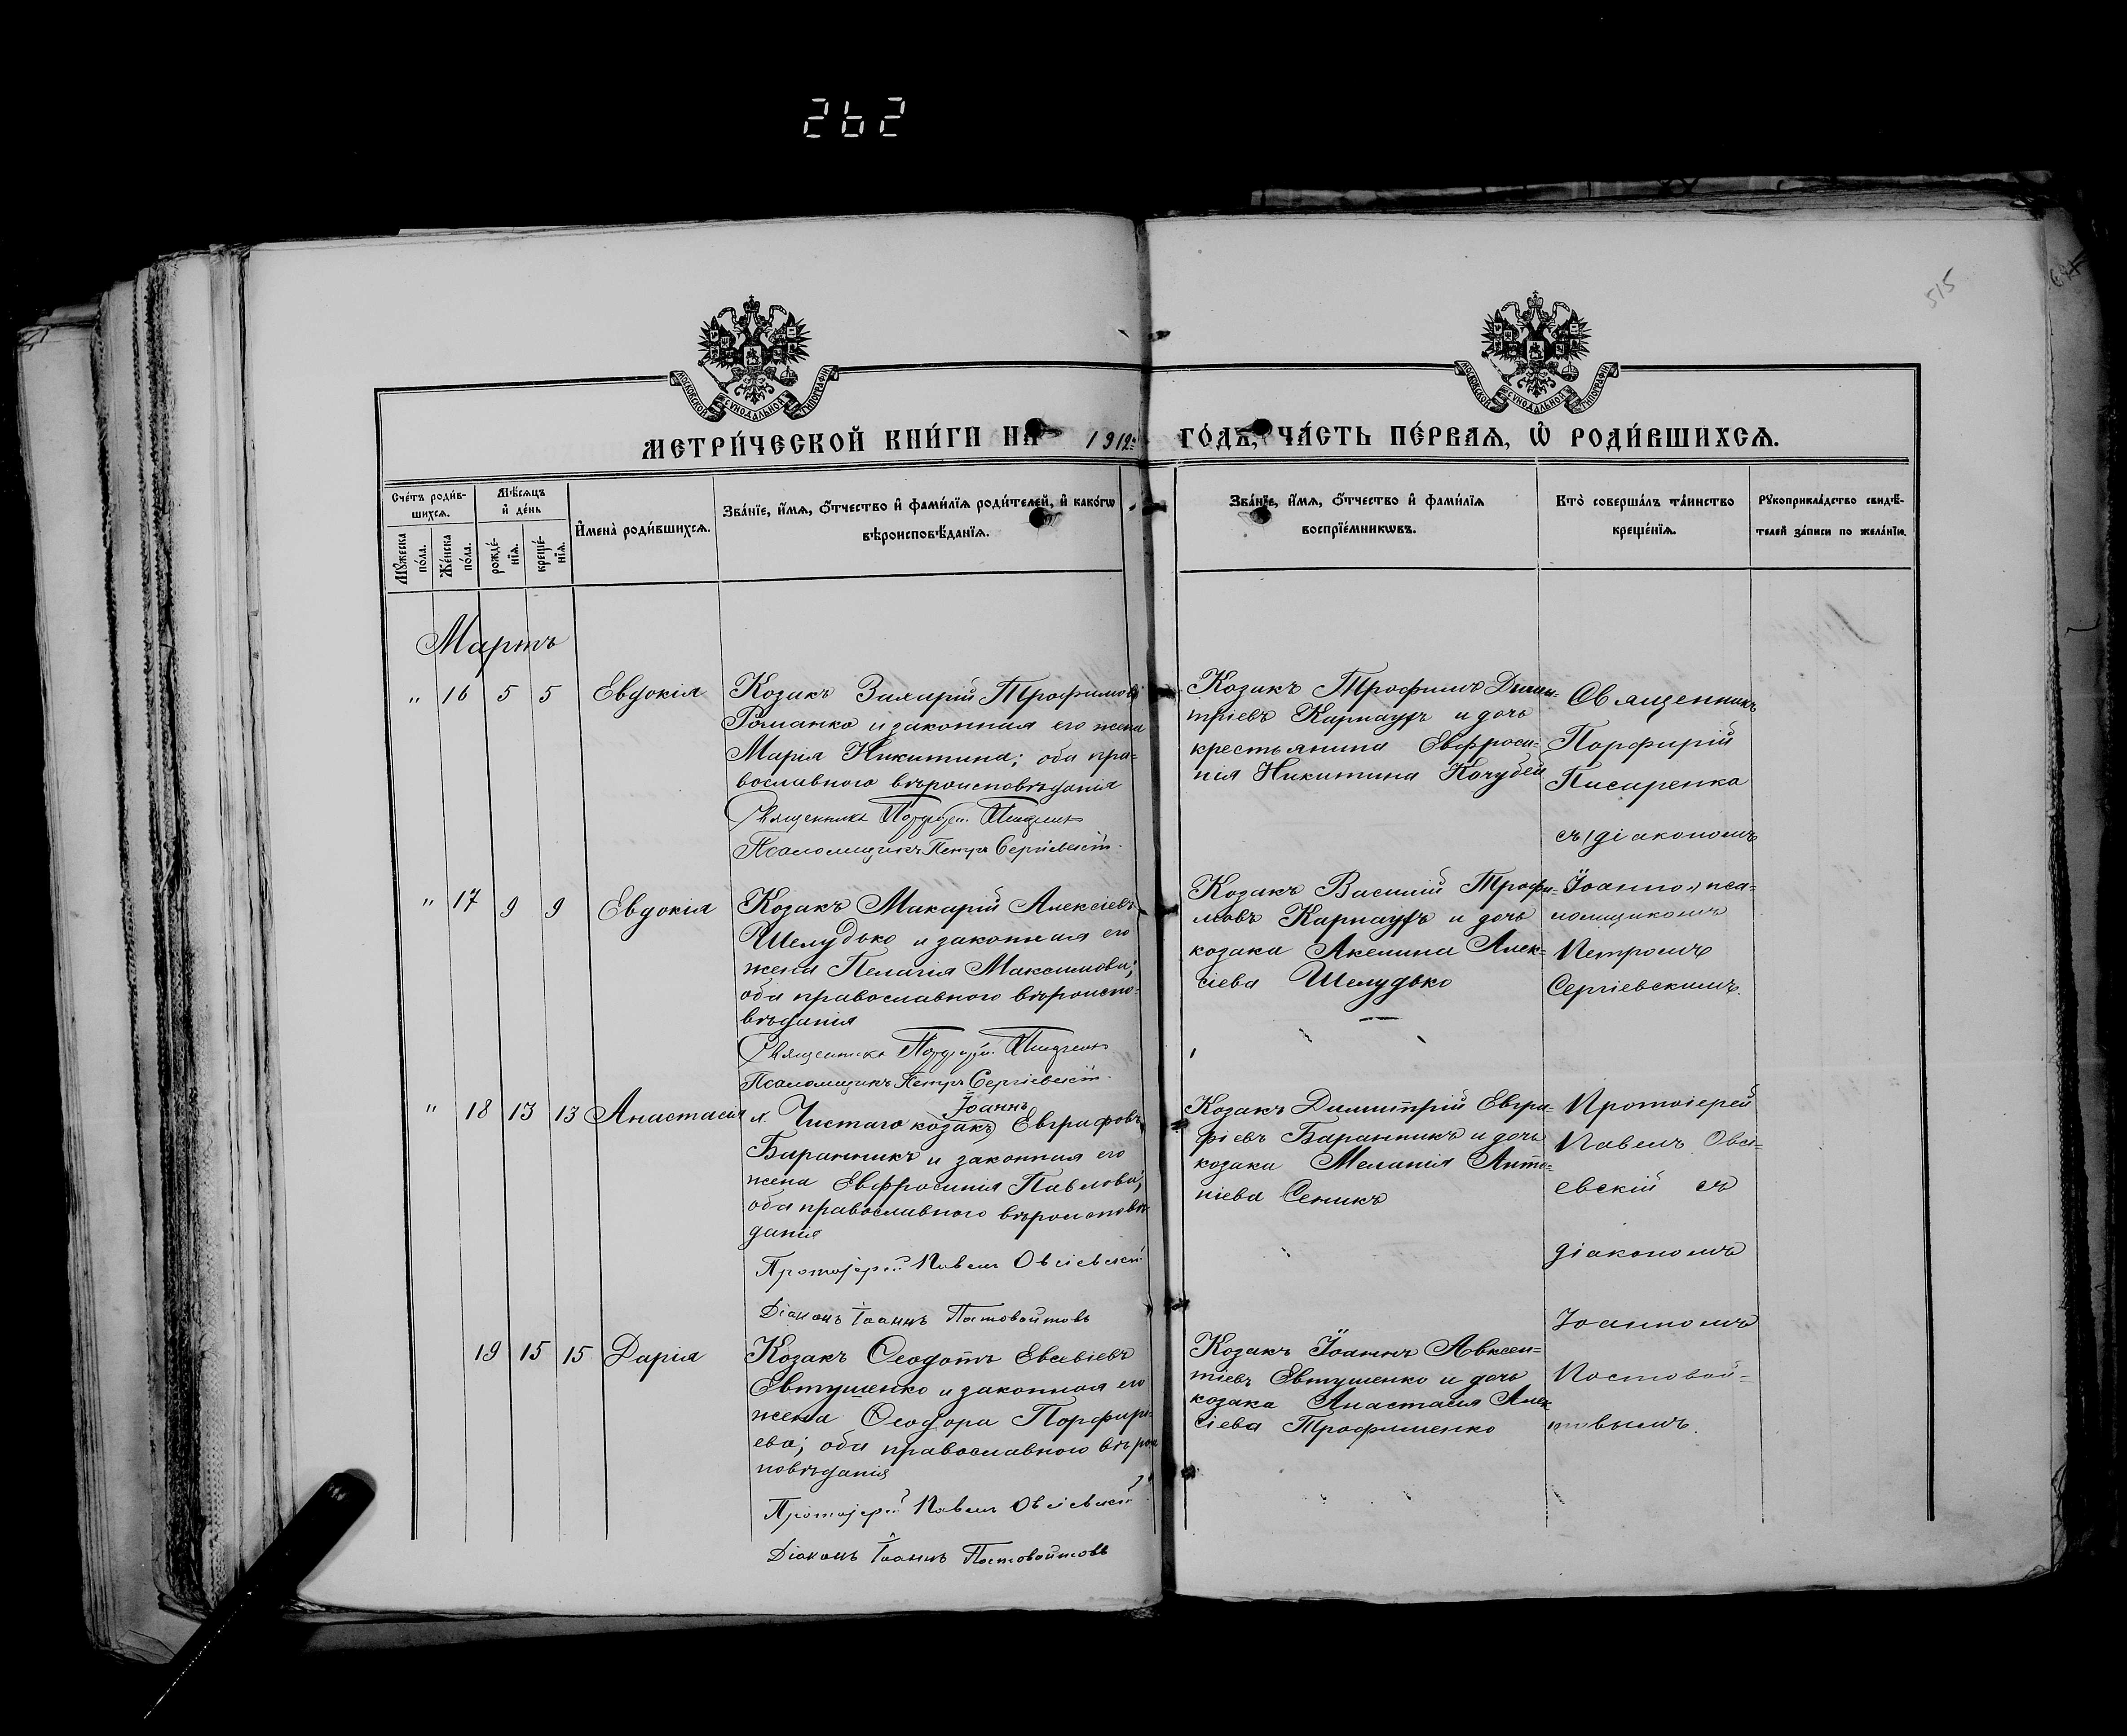 262
515
МОСКОВСКОЙ СѴНОДАЛЬНОЙ ТИПОГРАФІИ
МОСКОВСКОЙ СѴНОДАЛЬНОЙ ТИПОГРАФІИ
МЕТРИ́ЧЕСКОЙ КНИ́ГИ НА 1912 ГО́ДЪ, ЧА́СТЬ ПЕ́РВАѦ, Ѡ҆ РОДИ́ВШИХСѦ.
Сче́тъ роди́в-
шихсѧ.
Мꙋ́жеска по́ла.
Же́нска по́ла.
Мѣ́сѧцъ и҆ де́нь
рожде́-
нїѧ.
креще́-
нїѧ.
И҆мена̀ роди́вшихсѧ.
Зва́нїе, и҆́мѧ, ѻ҆́тчество и҆ фами́лїѧ роди́телей, и҆ како́гѡ
вѣроисповѣ́данїѧ.
Зва́нїе, и҆́мѧ, ѻ҆́тчество и҆ фами́лїѧ
воспрїе́мникѡвъ.
Кто̀ соверша́лъ та́инство
креще́нїѧ.
Рꙋкоприкла́дство свидѣ́-
телей за́писи по жела́нїю.
Мартъ
" 16 5 5 Евдокія
Козакъ Захарій Трофимовъ
Романко и законная его жена
Марія Никитина; оба пра-
вославнаго вѣроисповѣданія
Священникъ Порфирій
Псаломщикъ Петръ Сергіевскій
Козакъ Трофимъ Дими-
тріевъ Карнаухъ и дочь
крестьянина Евфроси-
нія Никитина Кочубей
Священникъ
Порфирій
Писаренко
съ діакономъ
" 17 9 9 Евдокія
Козакъ Макарій Алексіевъ
Шелудько и законная его
жена Пелагія Максимова;
оба православнаго вѣроиспо-
вѣданія
Священникъ Порфирій
Псаломщикъ Петръ Сергіевскій
Козакъ Василій Трофи-
мовъ Карнаухъ и дочь
козака Акелина Алек-
сіева Шелудько
Іоанно, пса-
ломщикомъ
Петромъ
Сергіевскимъ.
" 18 13 13 Анастасія
Іоаннъ
Чистаго козакъ Евграфовъ
Баранникъ и законная его
жена Евфросинія Павлова;
оба православнаго вѣроисповѣ-
данія
Протоіерей Павелъ Овсіевскій
Діаконъ Іоаннъ Постовойтовъ
Козакъ Димитрій Евгра-
фіевъ Баранникъ и дочь
козака Меланія Анто-
ніева Сеникъ
Протоіерей
Павелъ Овсі-
евскій съ
діакономъ
19 15 15 Дарія
Козакъ Ѳеодотъ Евсевіевъ
Евтушенко и законная его
жена Ѳеодора Порфирі-
ева; оба православнаго вѣрои
повѣданія
Протоіерей Павелъ Овсіевскій
Діаконъ Іоаннъ Постовойтовъ
Козакъ Іоаннъ Авксен-
тіевъ Евтушенко и дочь
козака Анастасія Алек
сіева Трофименко
Іоанномъ
Постовой-
товымъ.